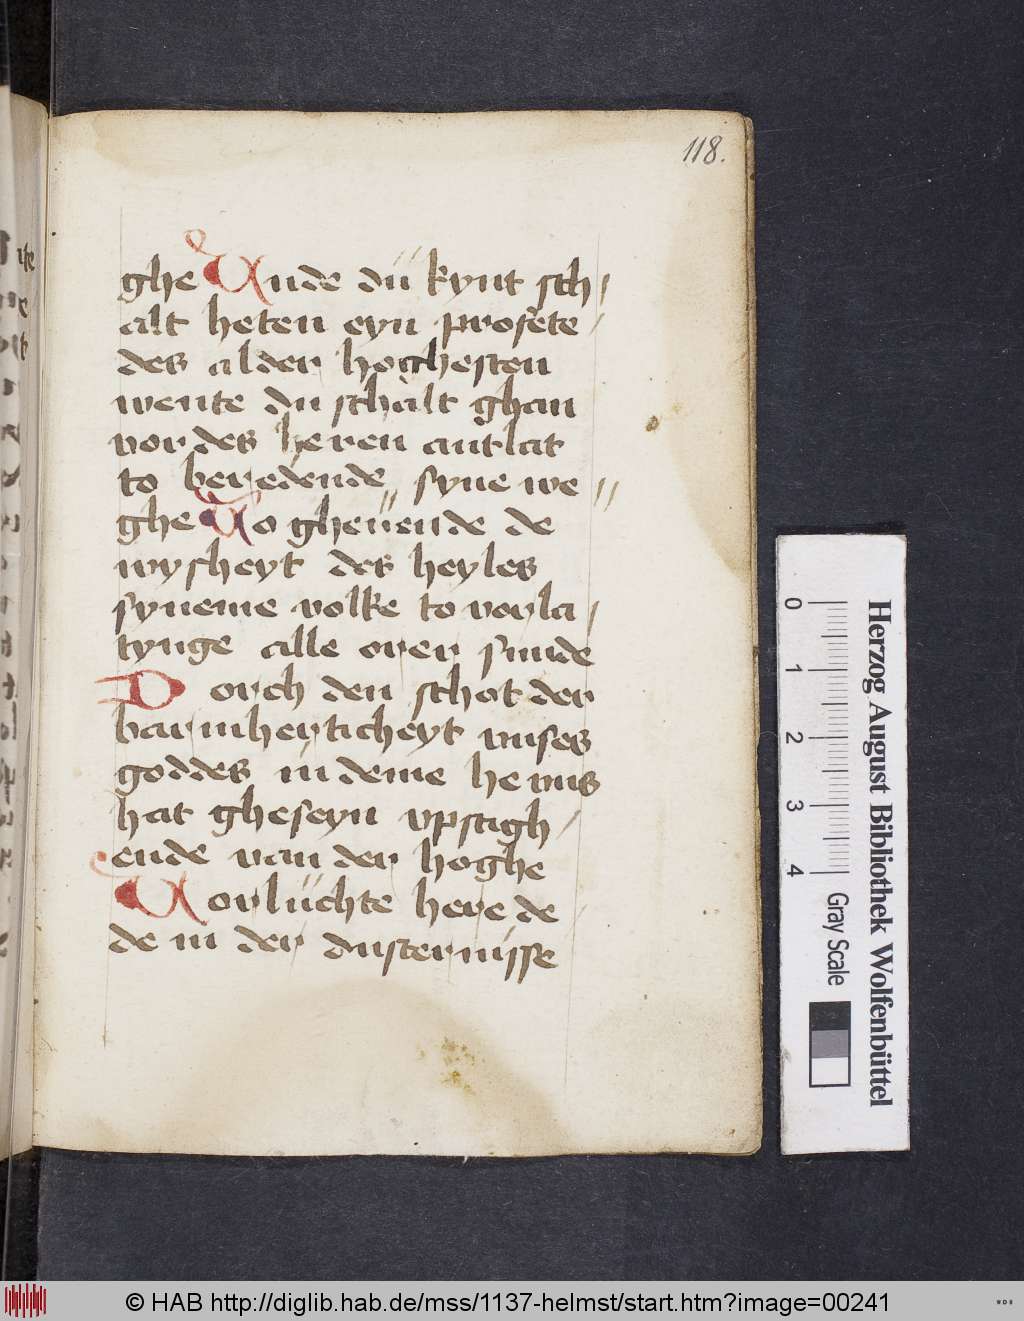 118.
ghe Unde dü kynt sch/
alt heten eyn profete/
des alder hoghesten
wente du schalt ghan
vor des heren antlat
to beredende syne we//
ghe To gheüende de
wysheyt des heyles
syneme volke to vorla/
tynge alle orer sunde
Dorch den schot der
barmherticheyt unses
goddes in deme he uns
hat gheseyn upstigh/
ende van der hoghe
Vorlüchte here de
de in der dusternisse
0 1 2 3 4
Herzog August Bibliothek Wolfenbüttel
Gray Scale
© HAB http://diglib.hab.de/mss/1137-helmst/start.htm?image=00241